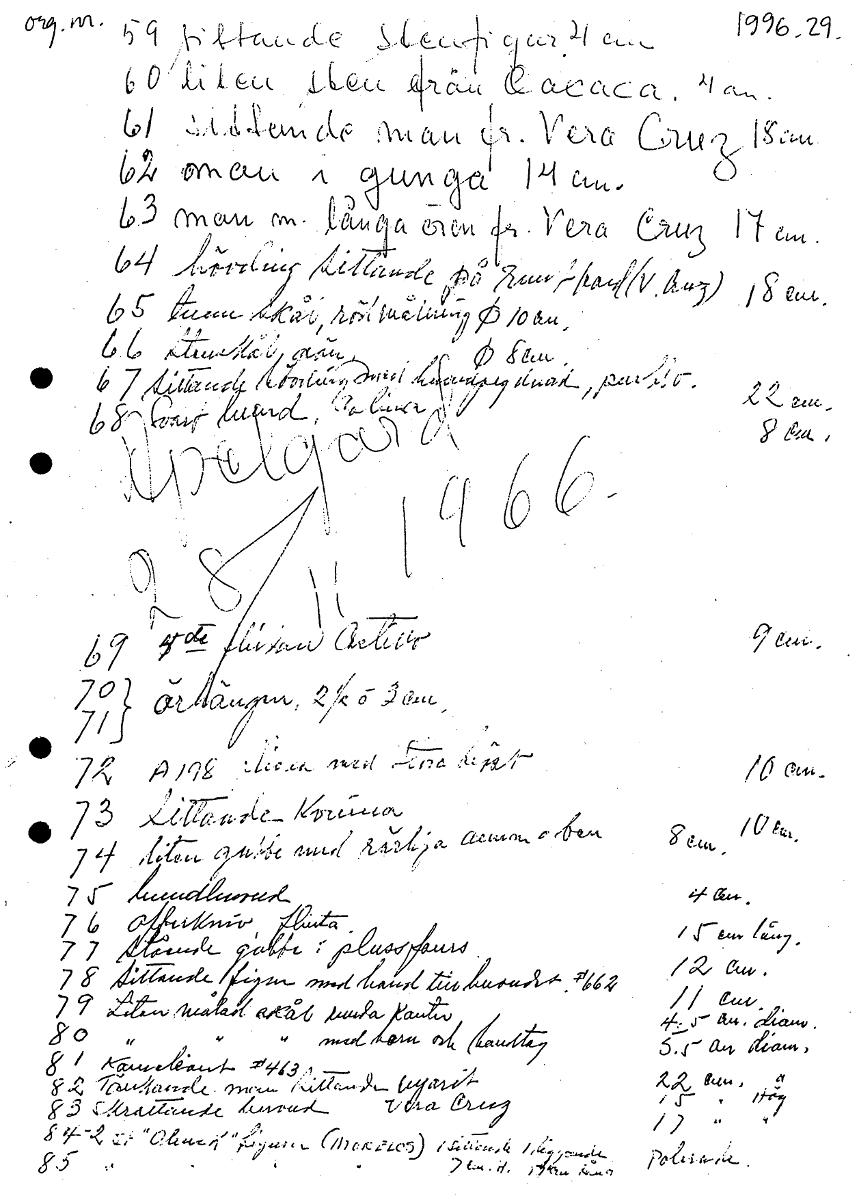 org. nr. 1996.29.
59 sittande stenfigur 4 cm
60 liten sten från Oacaca. 4 cm.
61 sittande man fr. Vera Cruz 18 cm
62 man i gunga 14 cm.
63 man m. långa ören fr. Vera Cruz 17 cm.
64 hövding sittande på (V. Cruz) 18 cm.
65 tunn skål, rödmålning Ø 10 cm.
66 stenskål, grön, Ø 8 cm.
67 sittande hövding med 22 cm.
68 Svart hund, Colima 8 cm.
Apelgård
28 11 1966.
69 9 cm.
70}
71} örhängen, 2 st ö 3 cm.
72 A198 med stora 10 cm.
73 Sittande Kvinna 10 cm.
74 liten gubbe med rörliga armar o ben 8 cm.
75 hundhuvud 4 cm.
76 offerkniv flinta 15 cm lång.
77 stående gubbe i plussfours 12 cm.
78 Sittande figur med hand till huvudet #662 11 cm
79 Liten målad skål runda kanter 4.5 cm. diam.
80 " " " med horn och handtag 5.5 cm diam.
81 #463 22 cm. "
82 Tänkande man sittande Nyarit 15 " Hög
83 Skrattande huvud Vera Cruz 17 " "
84-2 st "Olmek" figurer (Morelos) 1 sittande 1 liggande
85 " " " 7 cm. H. Polerade.